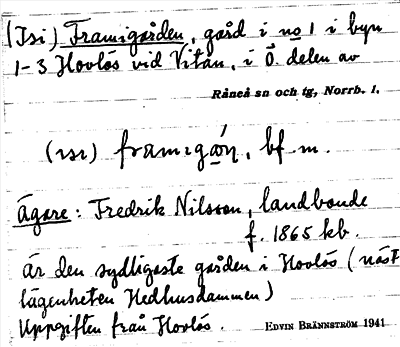 (Isi) Framigården, gård i no 1 i byn
1-3 Hovlös vid Vitån, i ö. delen av
Råneå sn och tg, Norrb. l.
(ısı) framıgåń, bf m.
Ägare: Fredrik Nilsson, landbonde
f. 1865 kb.
Är den sydligaste gården i Hovlös (näst
lägenheten Hedhusdammen)
Uppgiften från Hovlös. EDVIN BRÄNNSTRÖM 1941